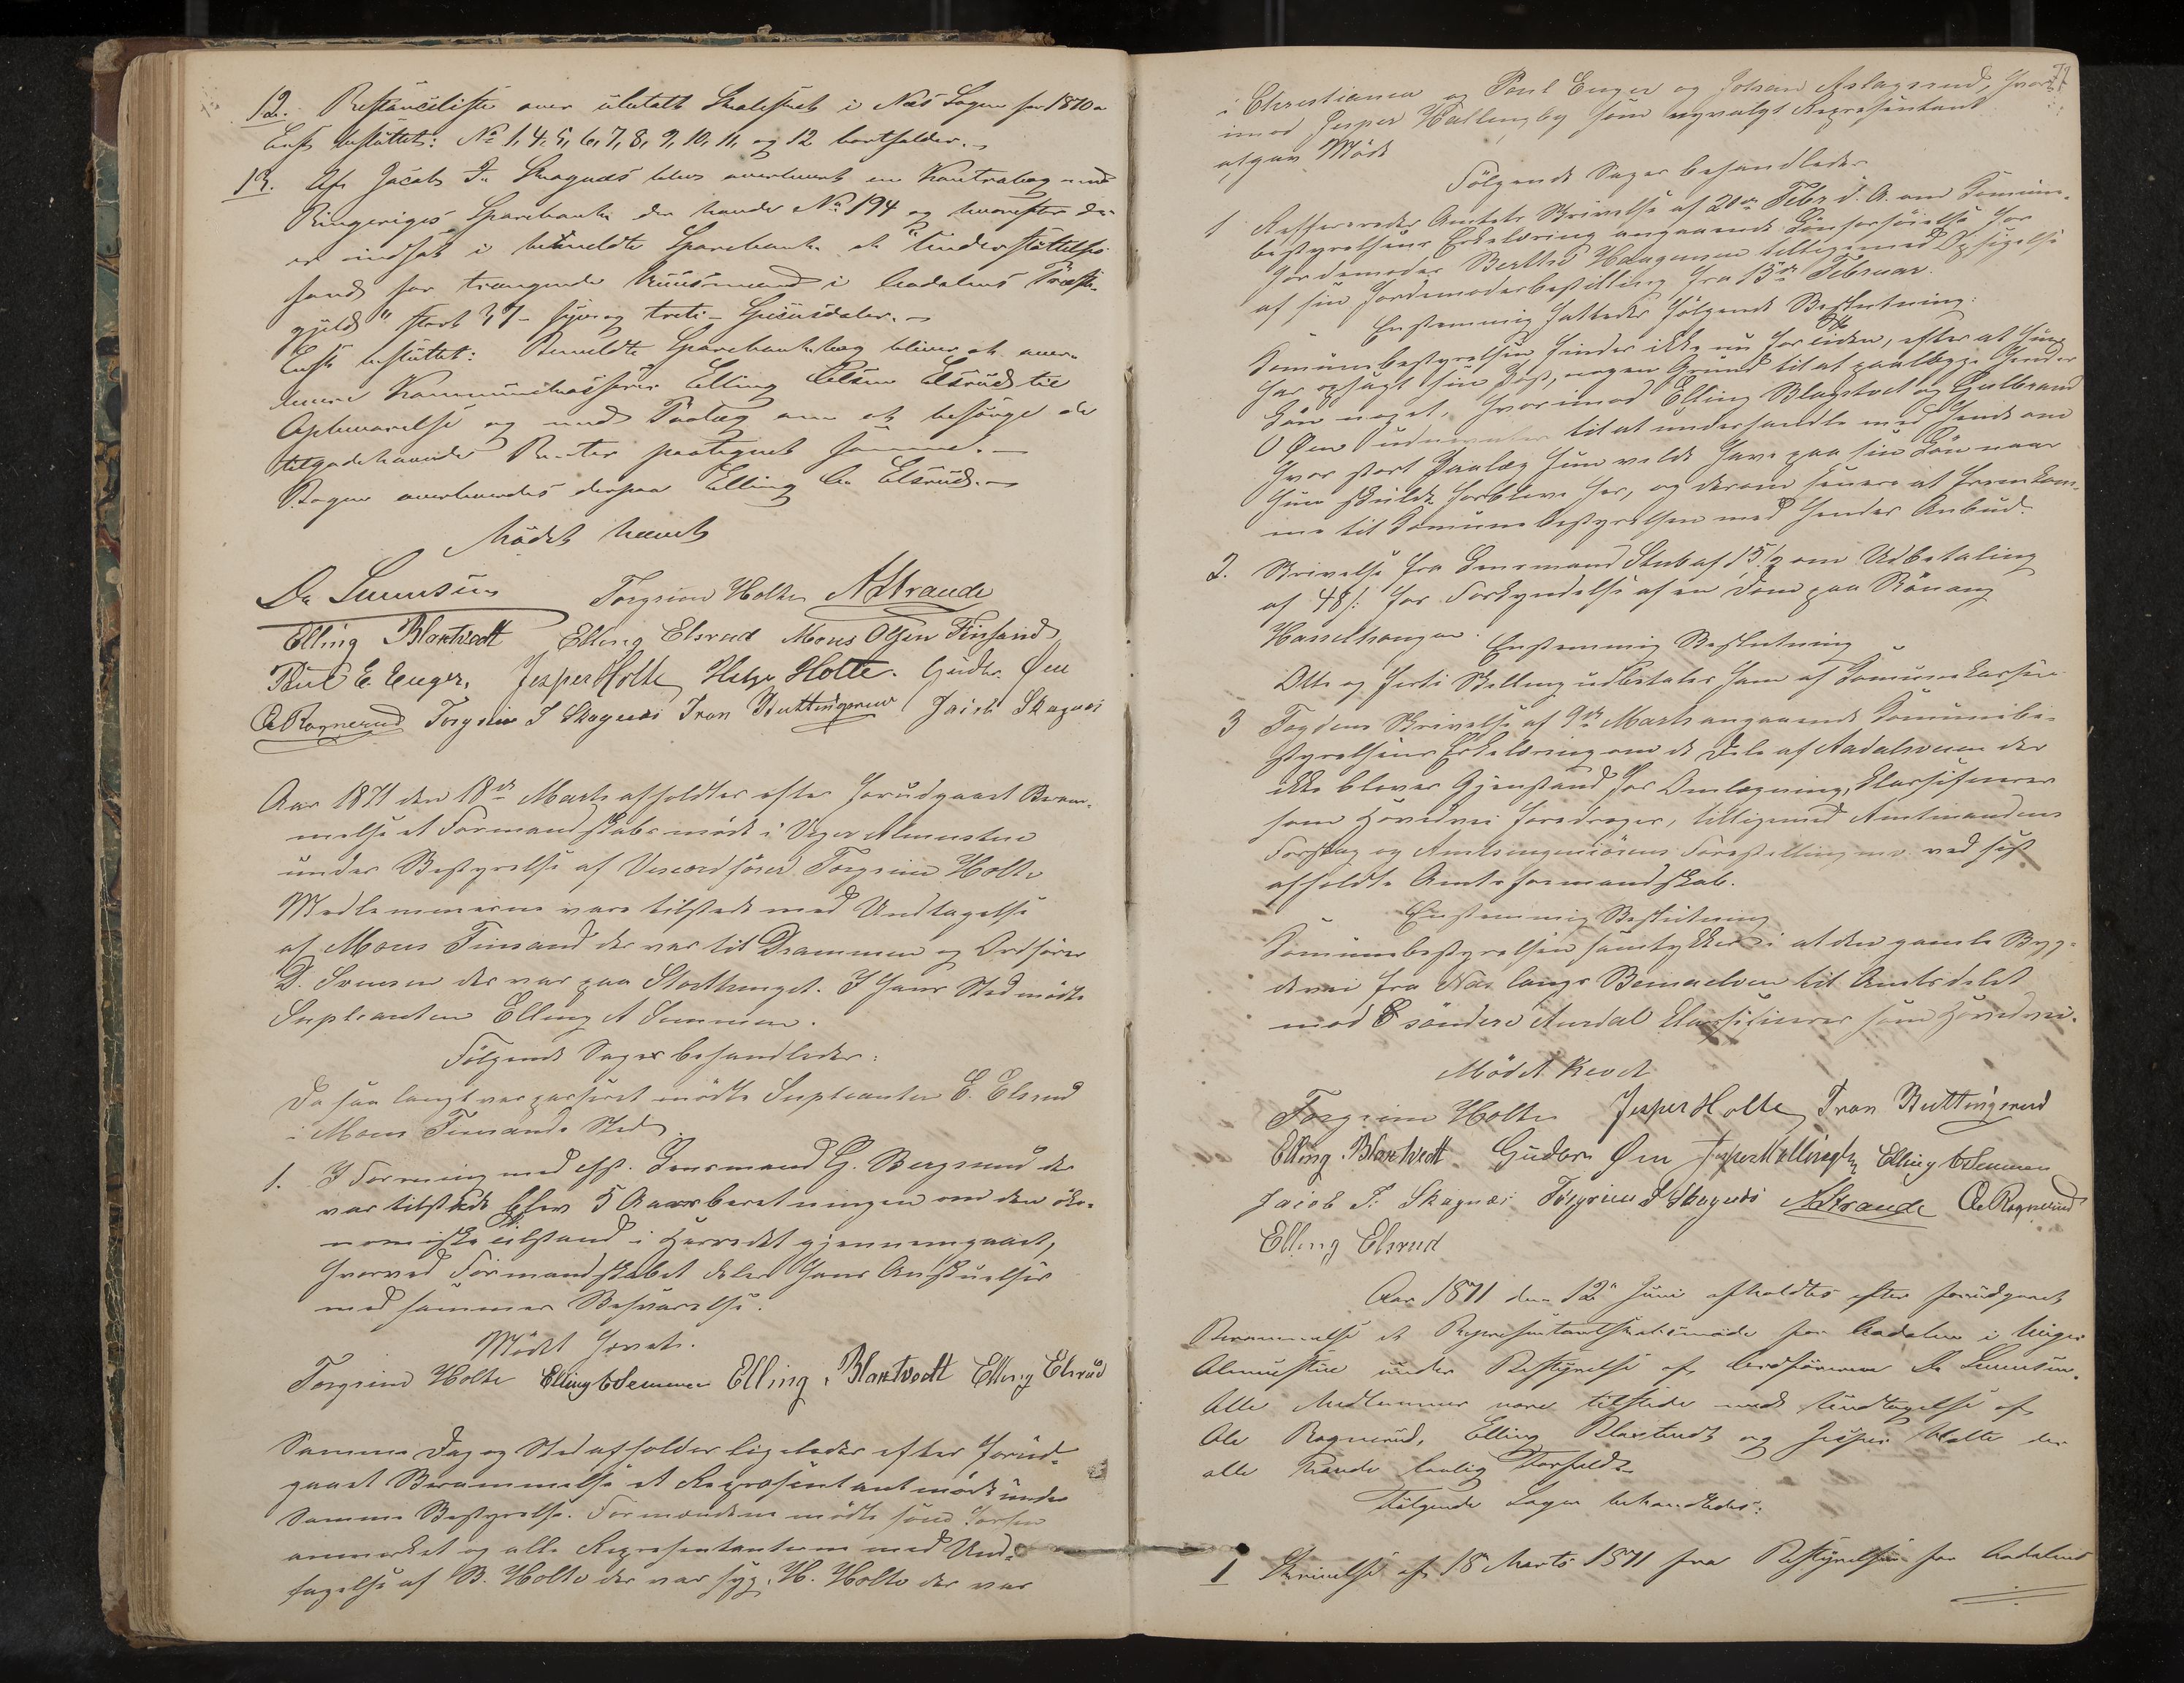 12. Restanceliste over uleilatt Skoleskat i Næs Sogn for 1870.
Enst. besluttet: No 1, 4, 5, 6, 7, 8, 9, 10, 11, og 12 bortfalder.
13. Af Jacob T. Skagnæs blev overleveret en Kontrabog med
Ringeriges Sparebank der havde No 194 og hvorefter der
er indsat i bemeldte Sparebank et "Understøttelses
fond for trængende Huusmænd i Aadalens Præste-
gjeld" stort 37 - syv og treti - Speciesdaler.
Enst. besluttet: Bemeldte Sparebankbog bliver at over-
levere Kommunekasserer Elling Olsen Elsrud til
Opbevarelse og med Paalæg om at besørge de
tilgodehavende Renter paategnet samme.
Bogen overleveredes derpaa Elling O. Elsrud.
Mødet hævet
D. Svensen Torgrim Holte A Strande
Elling Blaktvedt Elling Elsrud Mons Olsen Finsand
Paul E. Enger. Jesper Holte Helge Holte. Gudbr. Øen
O. Rognerud Torgrim J Skagnæs Iver Buttingsrud Jacob Skagnæs
Aar 1871 den 18de Marts afholdtes efter forudgaaet Beram-
melse et Formandskabsmøde i Viger Almustue
under Bestyrelse af Viceordfører Torgrim Holte
Medlemmerne vare tilstede med Undtagelse
af Mons Finsand der var til Drammen og Ordfører
D. Svensen der var paa Storthinget. I hans Sted mødte
Supleanten Elling A Semmen.
Følgende Sager behandledes:
Da saa langt var passeret mødte Supleanten E. Elsrud
i Mons Finsands Sted
1. I Forening med Hr. Lensmand G. Bergsund der
var tilstede blev 5 Aarsberetningen om den øko-
nomiske Tilstand i Herredet gjennemgaaet,
hvorved Formandskabet deler hans Anskuelser
med sammes Besvarelse.
Mødet hævet.
Torgrim Holte Elling A Semmen Elling Blaktvedt Elling Elsrud
Samme Dag og Sted afholdes ligeledes efter forud-
gaaet Berammelse et Repræsentantmøde under
samme Bestyrelse. Formændene mødte som forhen
anmærket og alle Repræsentanterne med Und-
tagelse af B. Holte der var syg, H. Holte der var
71
i Christiania og Poul Enger og Johan Aslagsrud, hvor-
imod Jesper Hallingby som nyvalgt Representant
afgav Møde
Følgende Sager behandledes
1 Reffereredes Amtets Skrivelse af 20de Febr d. A. om Komune-
bestyrelsens Erklæring angaaende Lønforhøielse for
Jordemoder Berthe Haagensen tilligemed Opsigelse
af sin Jordemoderbestilling fra 13de Februar.
Enstemmig fattedes følgende Beslutning:
Komunebestyrelsen finder ikke nu for Tiden, efter at hun
har opsagt sin Post, nogen Grund til at paalægge hendes
Løn noget, hvorimod Elling Blagstvet og Gulbrand
O Øen udnevnes til at underhandle med hende om
hvor stort Paalæg hun vilde have paa sin Løn naar
hun skulde forblive her, og derom senere at fremkom-
me til Komunebestyrelsen med hendes Anbud.
2. Skrivelse fra Lensmand Stub af 15/2 om Udbetaling
af 48 s. for Forkyndelse af en Dom paa Rønnaug
Hasselhaugen.
Enstemmig Beslutning
Otte og firti Skilling udbetales ham af Komunekassen
3 Fogdens Skrivelse af 9de Marts angaaende Komunebe-
styrelsens Erklæring om de Dele af Aadalsveien der
ikke bliver Gjenstand for Omlægning, klassifiseres
som Hovedvei foredrages, tilligemed Amtmandens
Forslag og Amtsingeniørens Forestilling m.v. ved sist
afholdte Amtsformandskab.
Enstemmig Beslutning
Komunebestyrelsen samtykker i at den gamle Byg-
devei fra Næs langs Beinaelven til Amtsdelet
mod søndere Aurdal klassifiseres som Hovedvei.
Mødet hevet
Torgrim Holte Jesper Holte Iver Buttingsrud
Elling Blaktvedt Gudbr. Øen Jesper Hallingby Elling A Semmen
Jacob T. Skagnæs Torgrim J Skagnæs A Strande O. Rognerud
Elling Elsrud
Aar 1871 den 12te Juni afholdtes efter forudgaaet
Berammelse et Representantskabsmøde for Aadalen i Viger
Almuestue under Bestyrelse af Ordføreren D. Svensen.
Alle Medlemmer vare tilstede med Undtagelse af
Ole Rognerud, Elling Blaktvedt og Jesper Holte der
alle havde lovlig Forfald.
Følgende Sager behandledes:
1 Skrivelse af 18 Marts 1871 fra Bestyrelsen for Aadalens